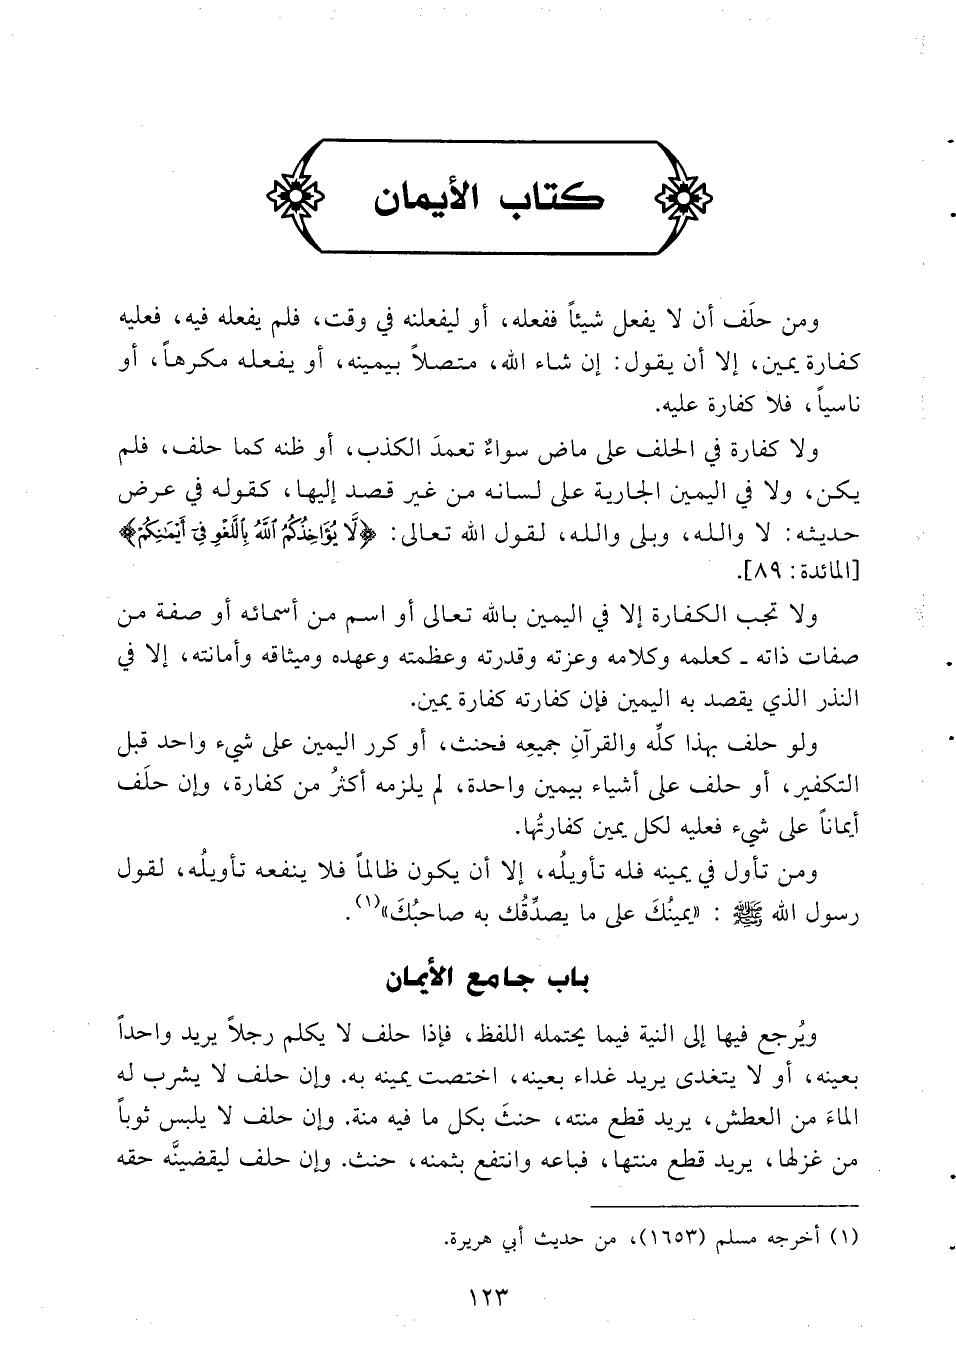 كتاب الأيمان
ومن حلَف أن لا يفعل شيئاً ففعله، أو ليفعلنه في وقت، فلم يفعله فيه، فعليه
كفارة يمين، إلا أن يقول: إن شاء الله، متصلاً بيمينه، أو يفعله مكرهاً، أو
ناسياً، فلا كفارة عليه.
ولا كفارة في الحلف على ماض سواءٌ تعمدَ الكذب، أو ظنه كما حلف، فلم
يكن، ولا في اليمين الجارية على لسانه من غير قصد إليها، كقوله في عرض
حديثه: لا والله، وبلى والله، لقول الله تعالى: ﴿لَّا يُؤَاخِذُكُمُ ٱللَّهُ بِٱللَّغْوِ فِىٓ أَيْمَٰنِكُمْ﴾
[المائدة: ٨٩].
ولا تجب الكفارة إلا في اليمين بالله تعالى أو اسم من أسمائه أو صفة من
صفات ذاته ـ كعلمه وكلامه وعزته وقدرته وعظمته وعهده وميثاقه وأمانته، إلا في
النذر الذي يقصد به اليمين فإن كفارته كفارة يمين.
ولو حلف بهذا كلِّه والقرآنِ جميعِه فحنث، أو كرر اليمين على شيء واحد قبل
التكفير، أو حلف على أشياء بيمين واحدة، لم يلزمه أكثرُ من كفارة، وإن حلَف
أيماناً على شيء فعليه لكل يمين كفارتُها.
ومن تأول في يمينه فله تأويلُه، إلا أن يكون ظالماً فلا ينفعه تأويلُه، لقول
رسول الله ﷺ : «يمينُكَ على ما يصدِّقُك به صاحبُكَ»(١).
باب جامع الأيمان
ويُرجع فيها إلى النية فيما يحتمله اللفظ، فإذا حلف لا يكلم رجلاً يريد واحداً
بعينه، أو لا يتغدى يريد غداء بعينه، اختصت يمينه به. وإن حلف لا يشرب له
الماءَ من العطش، يريد قطع منته، حنثَ بكل ما فيه منة. وإن حلف لا يلبس ثوباً
من غزلها، يريد قطع منتها، فباعه وانتفع بثمنه، حنث. وإن حلف ليقضينَّه حقه
(١) أخرجه مسلم (١٦٥٣)، من حديث أبي هريرة.
١٢٣